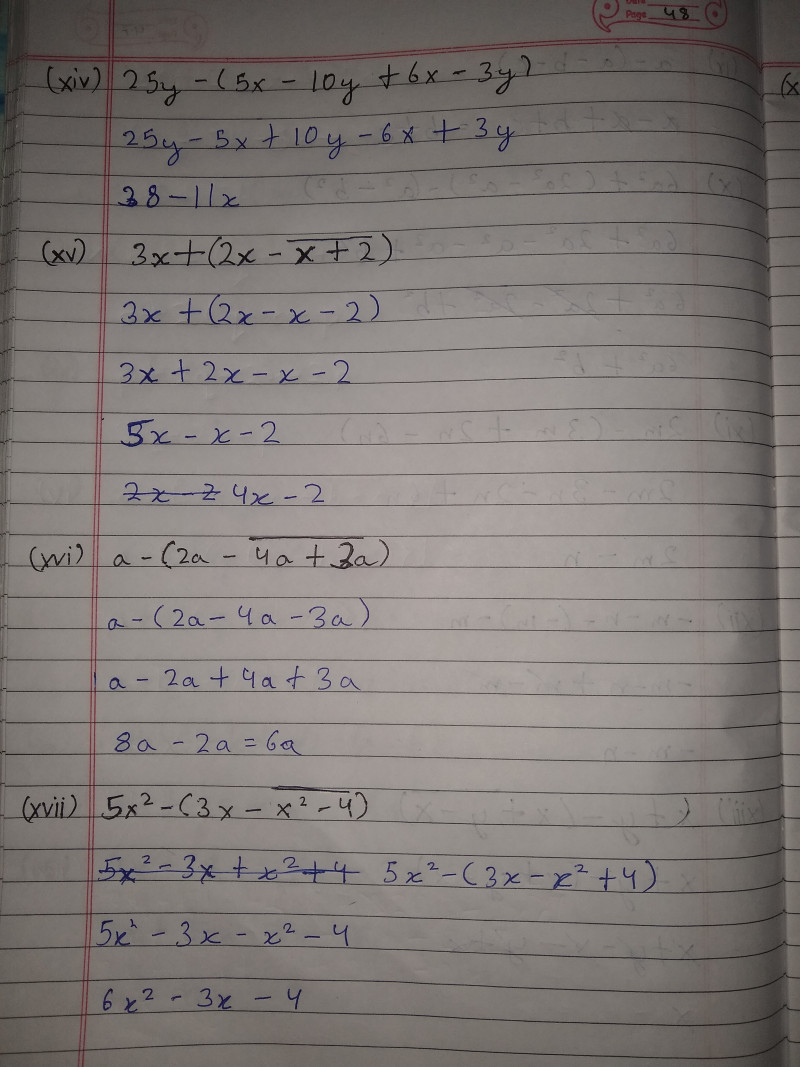 Page 48
(xiv) 25y - (5x - 10y + 6x - 3y)
25y - 5x + 10y - 6x + 3y
38 - 11x
(xv) 3x + (2x - x + 2)
3x + (2x - x - 2)
3x + 2x - x - 2
5x - x - 2
2x - 2 4x - 2
(xvi) a - (2a - 4a + 3a)
a - (2a - 4a - 3a)
a - 2a + 4a + 3a
8a - 2a = 6a
(xvii) 5x² - (3x - x² - 4)
5x² - 3x + x² + 4 5x² - (3x - x² + 4)
5x² - 3x - x² - 4
6x² - 3x - 4
(x